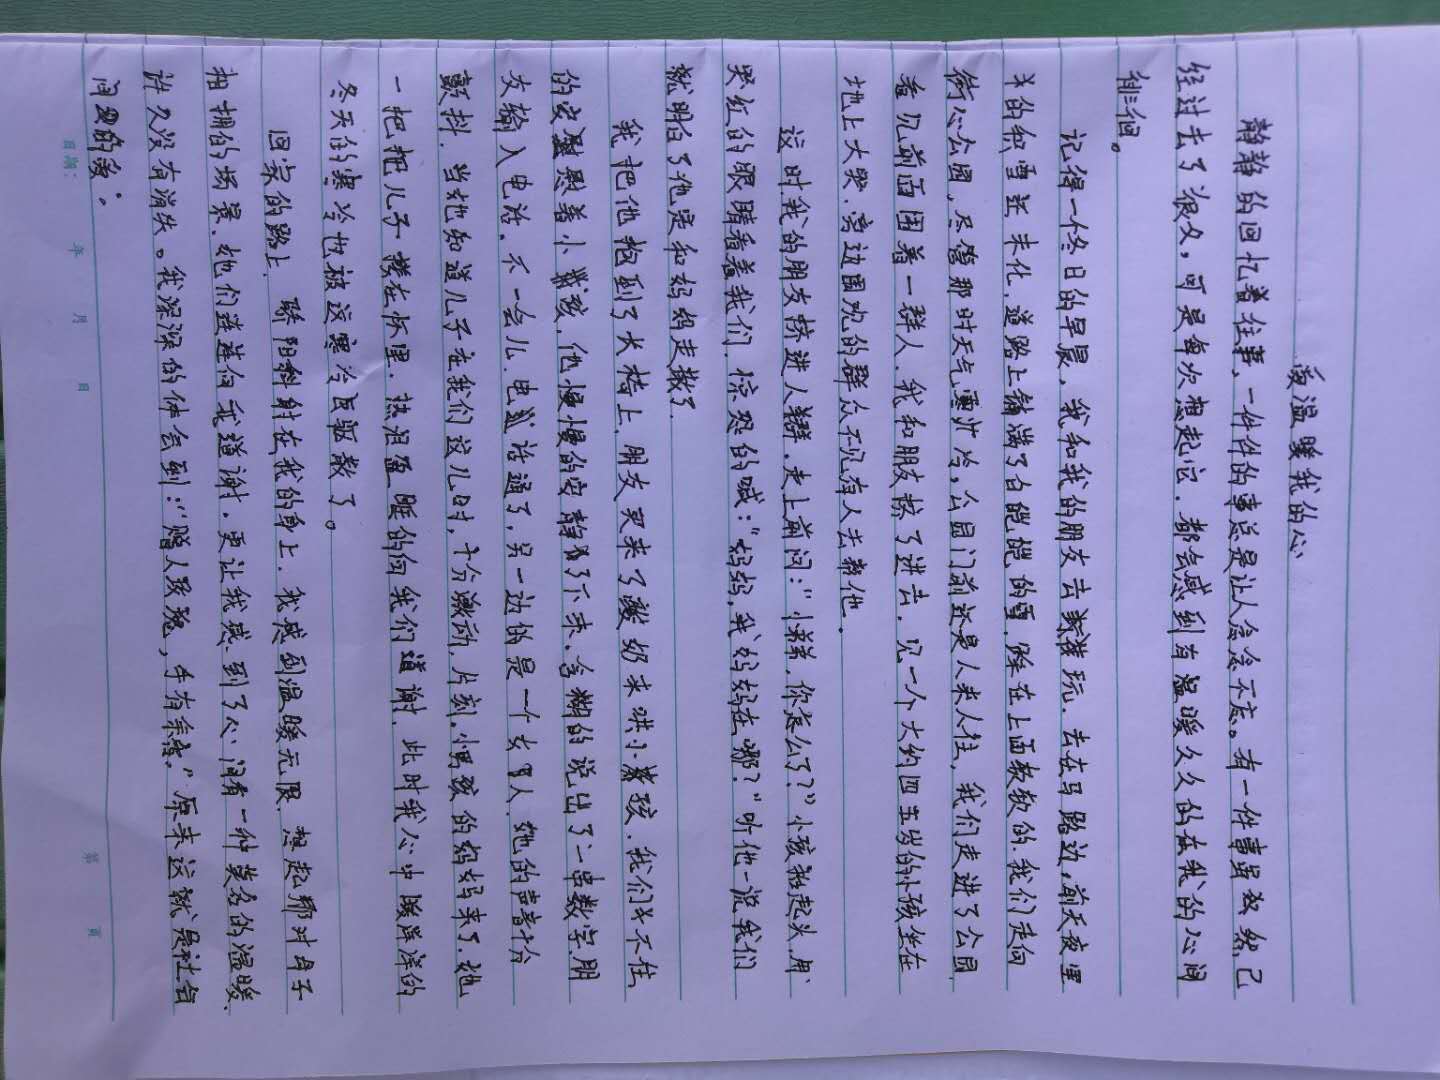 爱温暖我的心
静静的回忆着往事，一件件的事总是让人念念不忘。有一件事虽然已
经过去了很久，可是每次想起它，都会感到有温暖久久的在我的心间
徘徊。
记得一个冬日的早晨，我和我的朋友去游玩。走在马路边，前天夜里
的积雪还未化，道路上铺满了白皑皑的雪，踩在上面软软的。我们走向
街心公园，尽管那时天气寒冷，公园门前还是人来人往，我们走进了公园
看见前面围着一群人，我和朋友挤了进去，见一个大约四五岁的小孩坐在
地上大哭，旁边围观的群众不见有人去帮他。
这时我的朋友挤进人群，走上前问：“小弟弟，你怎么了？”小孩抬起头，用
哭红的眼睛看着我们，惊恐的喊：“妈妈，我妈妈在哪？”听他一说我们
就明白了他是和妈妈走散了。
我把他抱到了长椅上，朋友买来了酸奶来哄小孩，我们不住
的安慰着小孩，他慢慢的安静了下来，含糊的说出了一串数字，朋
友输入电话，不一会儿，电话通了，另一边的是一个女人，她的声音十分
颤抖，当她知道儿子在我们这儿时，十分激动，片刻，小男孩的妈妈来了，她
一把把儿子搂在怀里，热泪盈眶的向我们道谢，此时我心中暖洋洋的
冬天的寒冷也被这寒冷驱散了。
回家的路上，骄阳斜射在我的身上，我感到温暖无限，想起那对母子
相拥的场景，她们连连向我道谢，更让我感到了心间有一种莫名的温暖，
许久没有消失。我深深的体会到：“赠人玫瑰，手有余香。”原来这就是社会
间的爱。
日期： 年 月 日
第 页